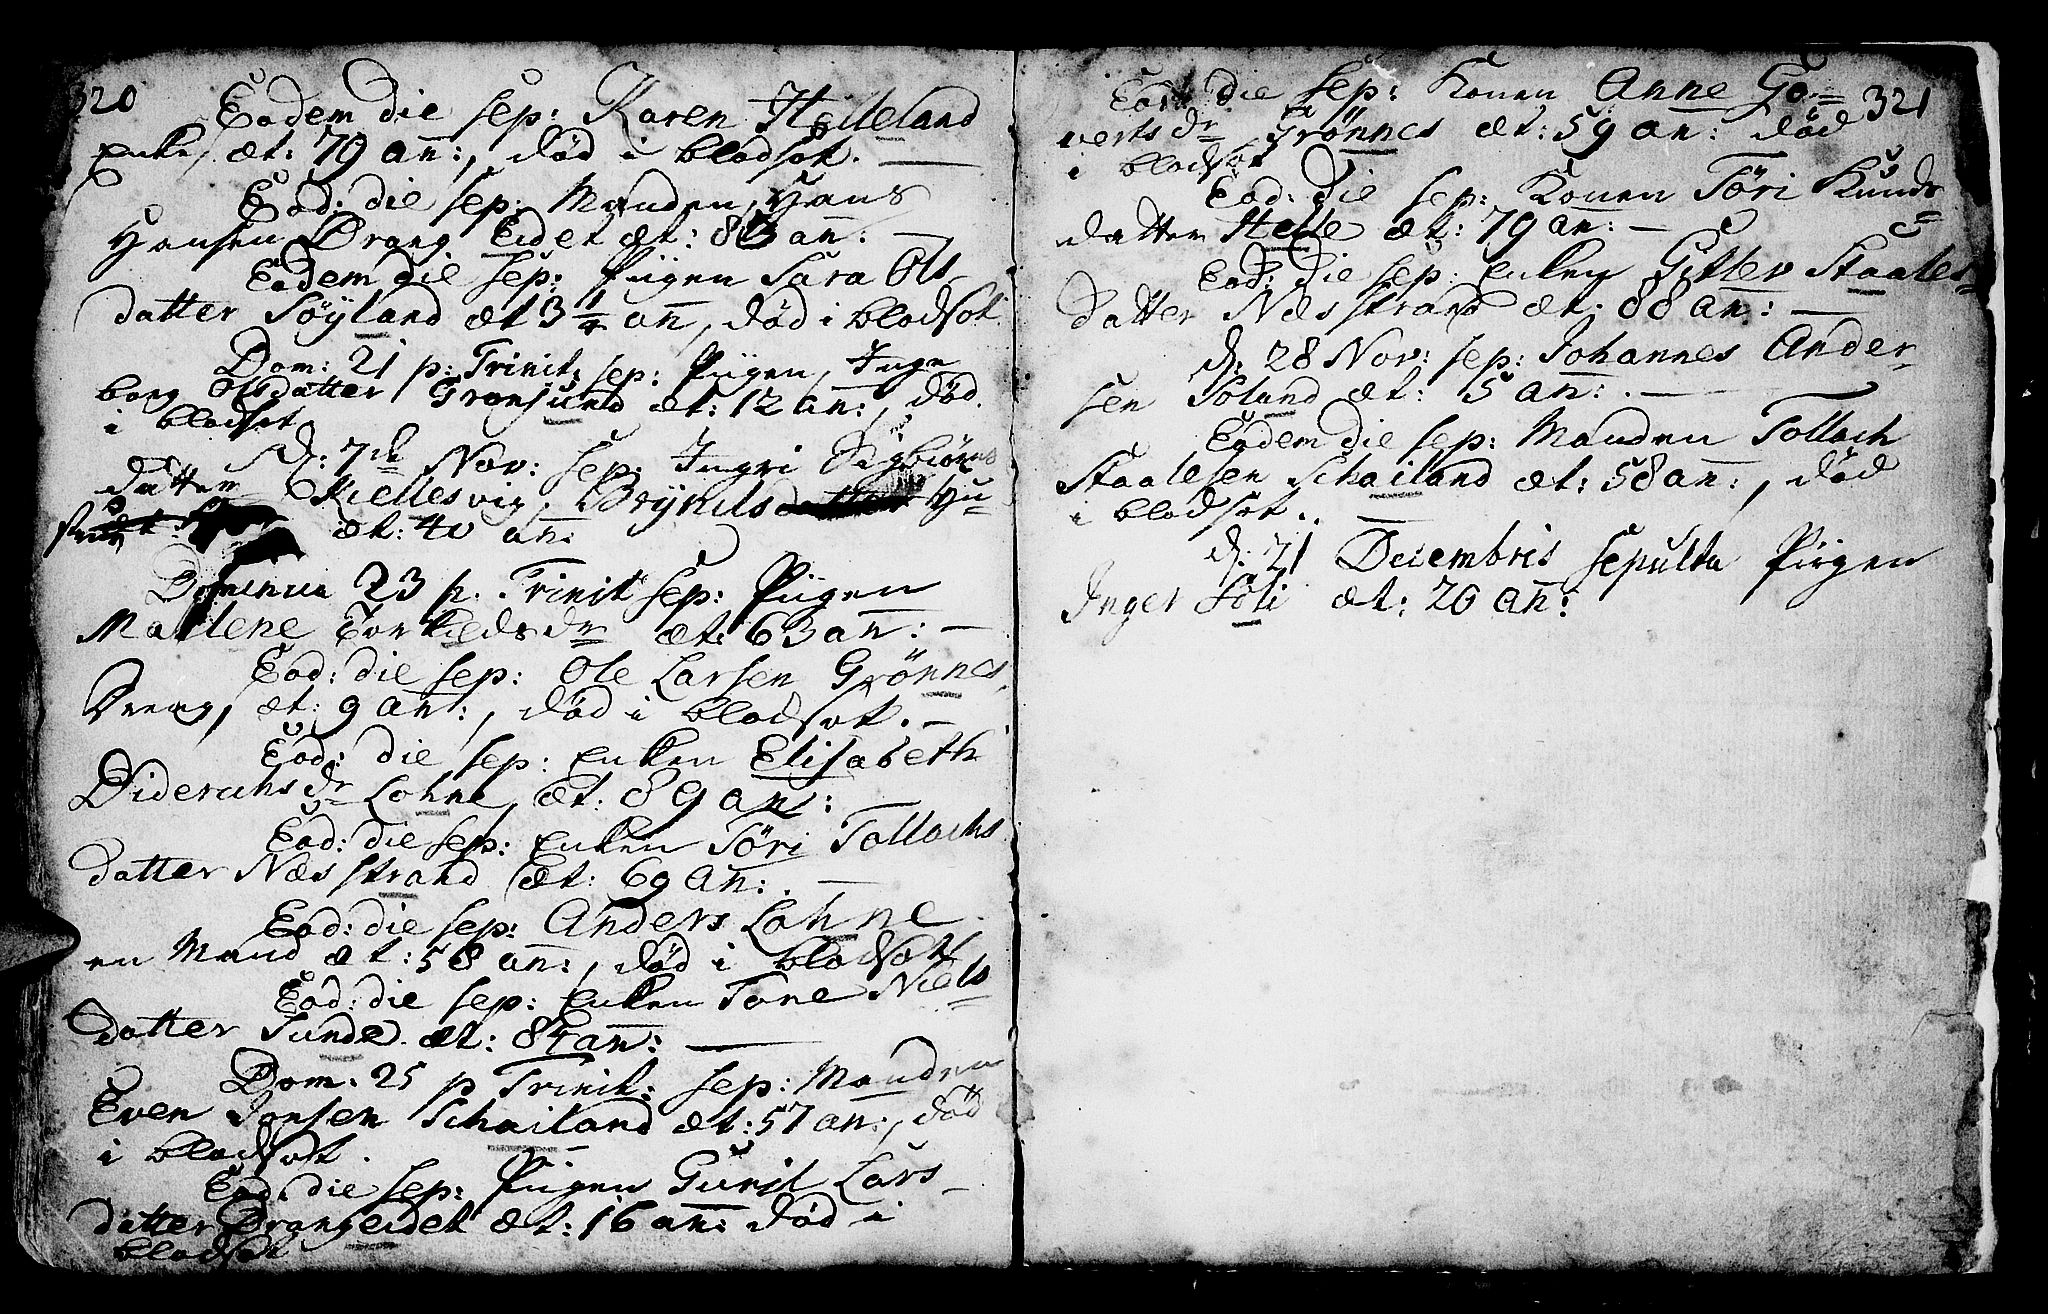 320
Eodem die sep: Karen Helleland
Enke, æt: 79 an:, død i blodsot.
Eod: die sep: Manden Hans
Hansen Drang Eidet æt: 83 an:
Eodem die sep: Pügen Sara Ols
datter Söyland æt 3 1/4 an, död i blodsot
Dom: 21 p: Trinit: sep: Pügen, Inge
borg Olsdatter Gronsund æt: 12 an:, död
i blodsot
d: 7de Nov: sep: Ingri Sigbiörns
datter Kiellesvig, Brÿnils Hu-
æt: 40 an:
Dominica 23 p. Trinit sep: Pügen
Marlene Torkieds dr æt: 63 an:
Eod: die sep: Ole Larsen Grönnes
Dreng, æt: 9 an:, död i blodsot.
Eod: die sep: Enken Elisabeth
Diderichs dr Lohne, æt: 89 an:
Eod: die sep: Enken Töri Tollachs
datter Næsstrand æt: 69 an:.
Eod: die sep: Anders Lohne
en Mand æt: 58 an:, död i blodsot
Eod: die sep: Enken Tone Niels
datter Sunde. æt: 84 an:
Dom: 25 p Trinit: sep: Manden
Even Jonsen Schailand æt: 57 an:, död
i blodsot.
Eod: die sep: Pügen Guril Lars
datter Drangeidet æt: 16 an: död i
blodsot
321
Eod die sep: Konen Anne Go=
verts dr Grönnes æt: 59 an: död
i blodsot
Eod: die sep: Konen Töri Knuds=
datter Helle æt: 79 an:
Eod: die sep: Enken Gitter Staales=
datter Næsstrand æt: 88 an:
d: 28 Nov: sep: Johannes Ander-
sen Soland æt: 5 an:.
Eodem die sep: Manden Tollach
Staalesen Schailand æt: 58 an:, död
i blodsot.
d: 21 Decembris sepulta Pigen
Inger Föli æt: 26 an: